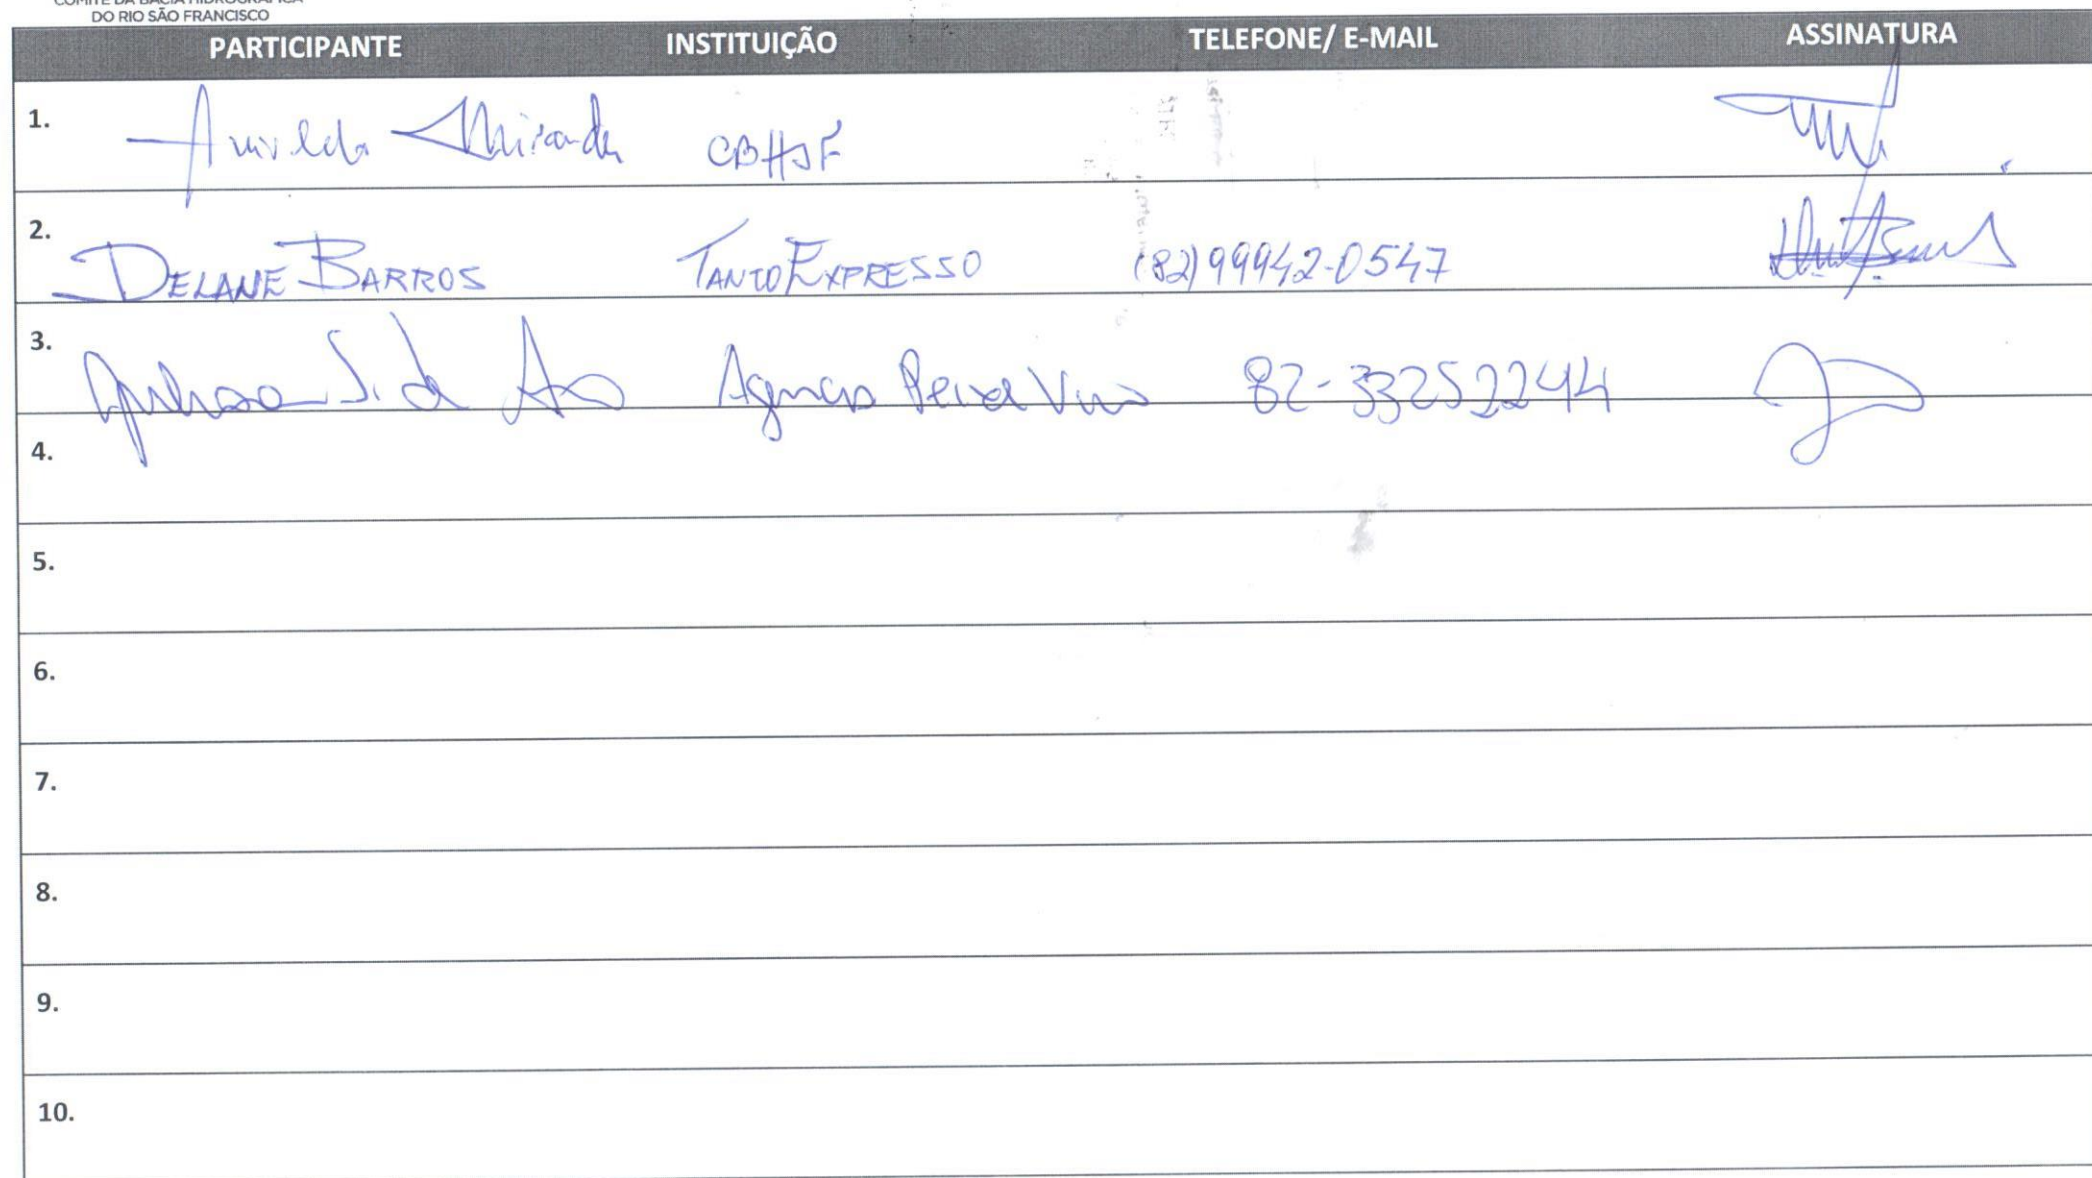 COMITÊ DA BACIA HIDROGRÁFICA
DO RIO SÃO FRANCISCO
PARTICIPANTE INSTITUIÇÃO TELEFONE/ E-MAIL ASSINATURA
1. Anivaldo Miranda CBHSF
2. DELANE BARROS TANTO EXPRESSO (82) 99942-0547
3. S. de Agência Peixe Vivo 82-33252244
4.
5.
6.
7.
8.
9.
10.